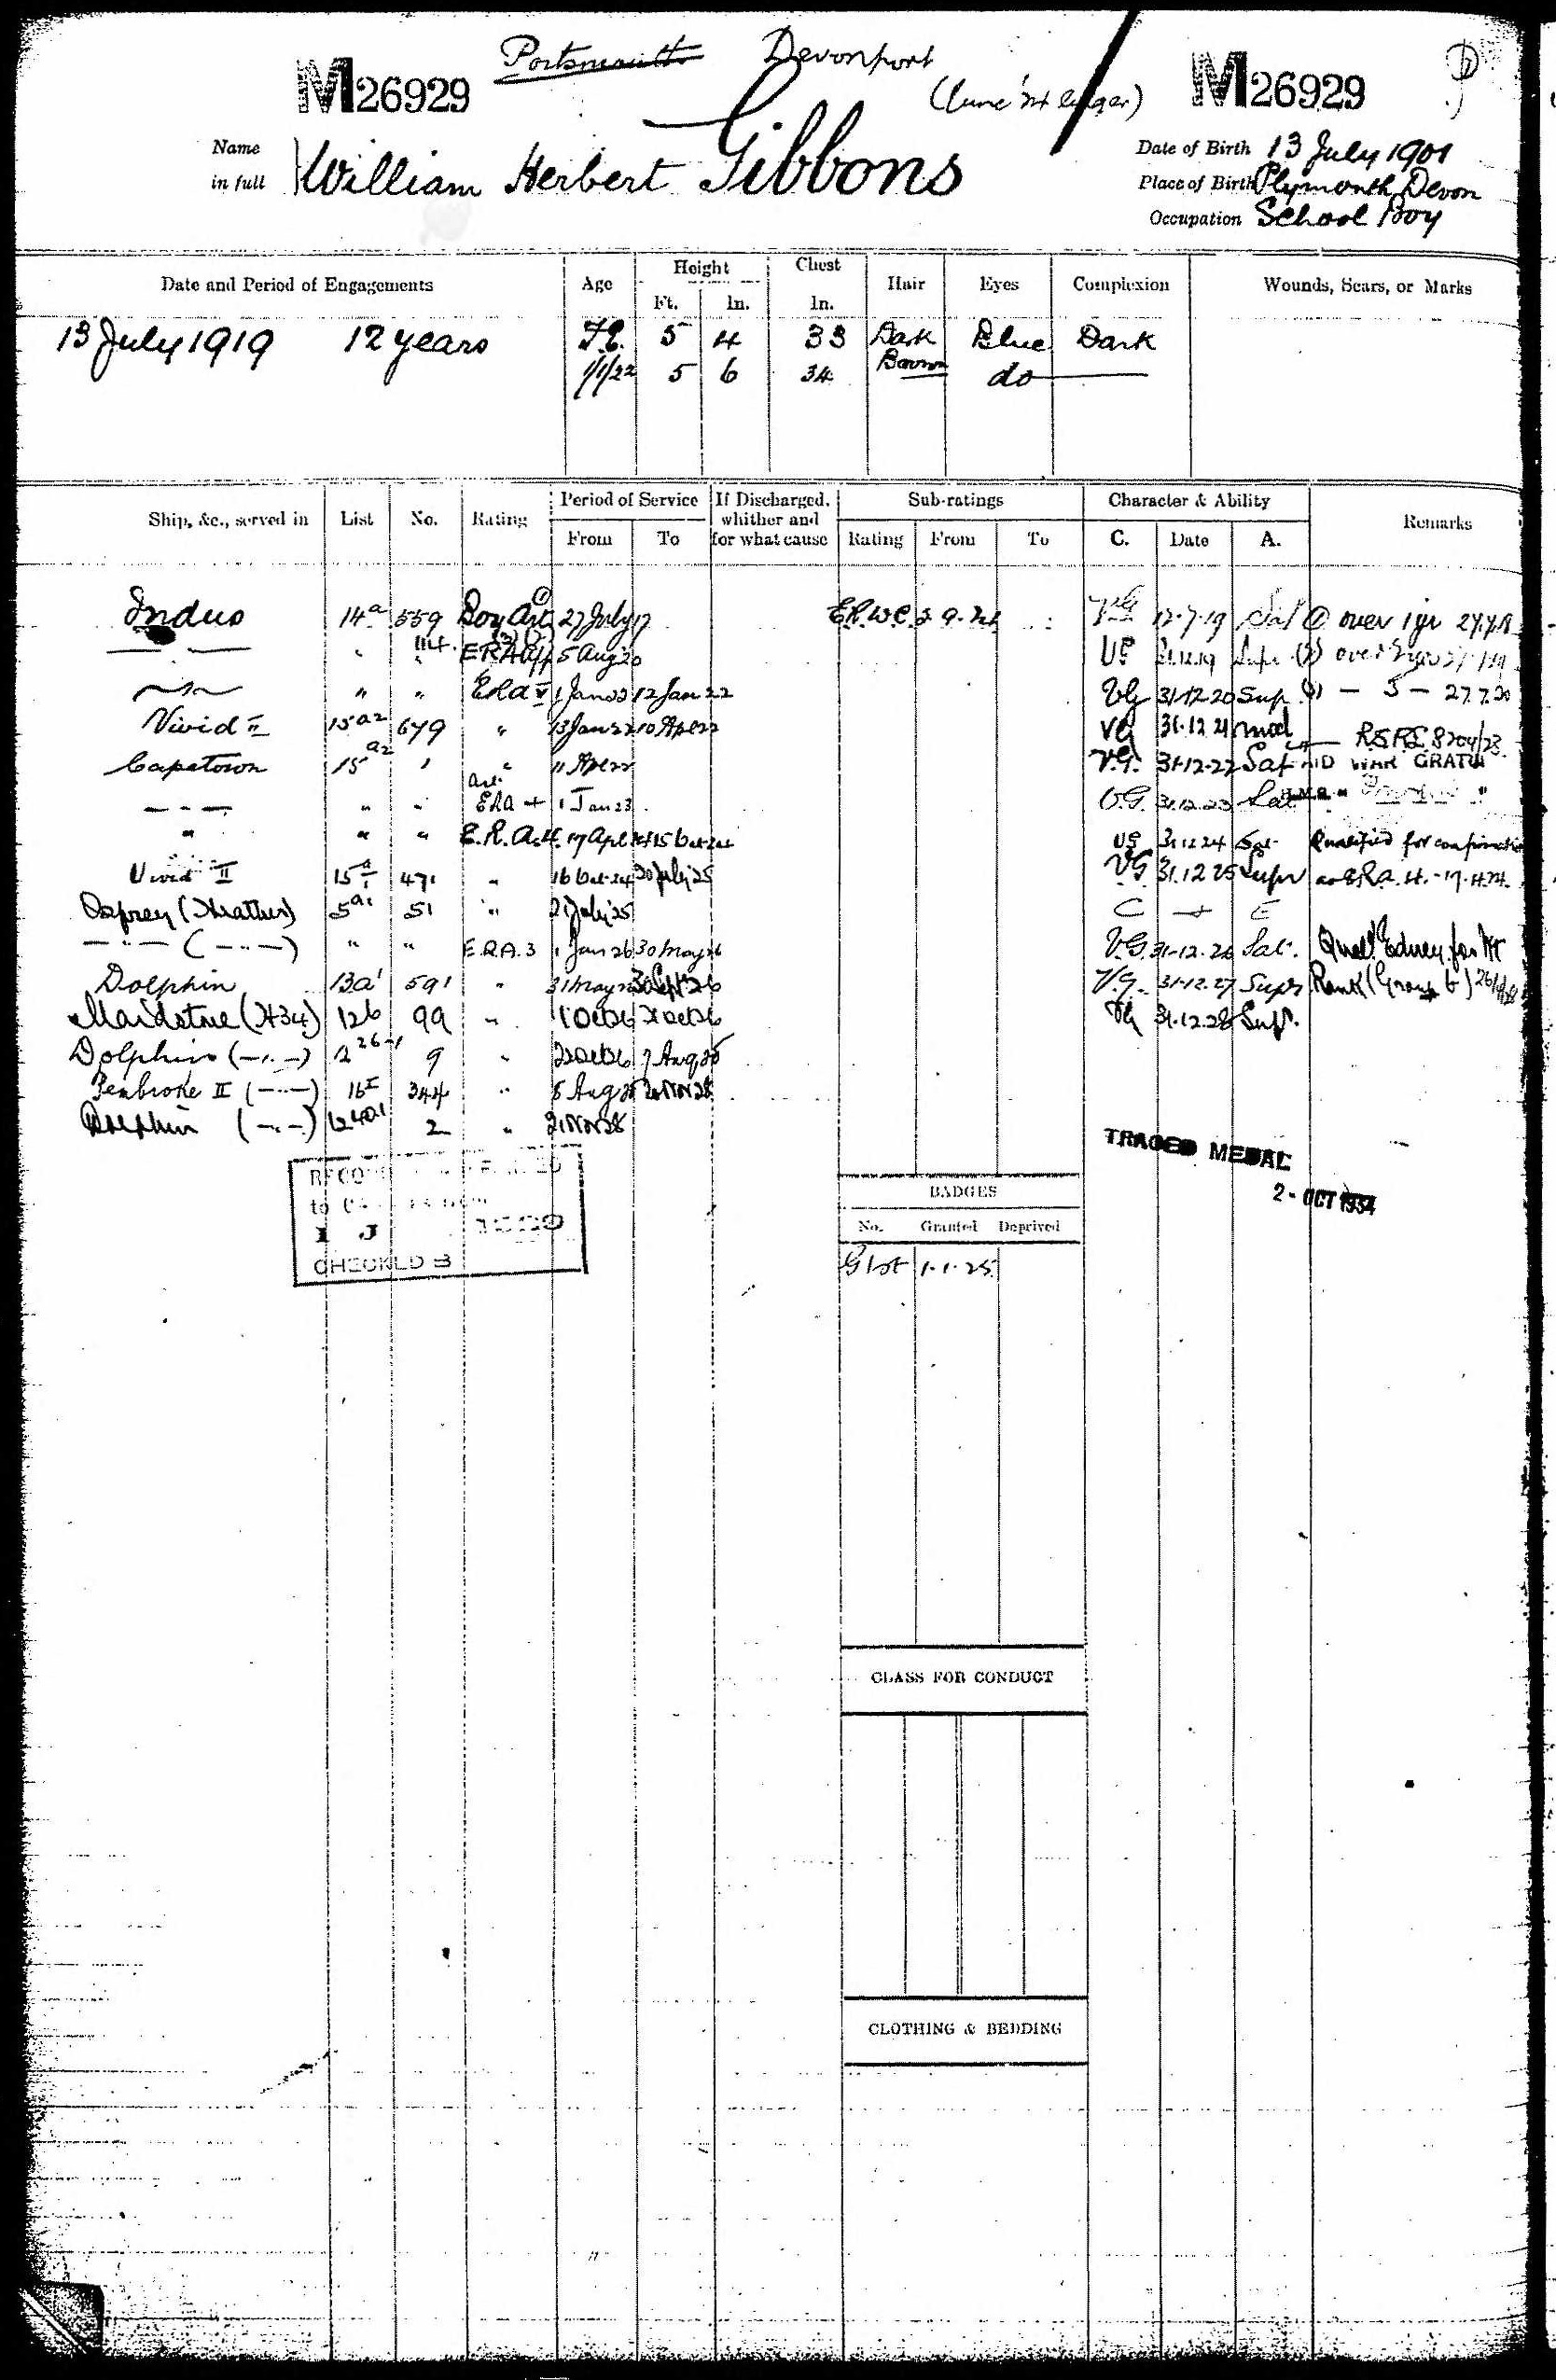 Portsmouth Devonport
M26929 M26929
Name in full William Herbert Gibbons
Date of Birth 13 July 1901
Place of Birth Plymouth Devon
Occupation School Boy
Date and Period of Engagements Age Height Chest Hair Eyes Complexion Wounds, Scars, or Marks
Ft. In. In.
13 July 1919 12 years F.E. 5 4 33 Dark Blue Dark
1/1/22 5 6 34 Brown do
Ship, &c., served in List No. Rating Period of Service If Discharged, whither and for what cause Sub-ratings Character & Ability Remarks
From To Rating From To C. Date A.
Indus 14a 559 Boy Art 27 July 17 E.R.W.C. VG 12.7.19 Sat over 1 yr
" 114 ERA App 5 Aug 20 VG 31.12.19 Supr over 2 yrs
" " ERA V 1 Jan 22 12 Jan 22 VG 31.12.20 Sup. - 3 - 27.7.20
Vivid II 15a2 679 " 13 Jan 22 10 Apr 22 VG 31.12.21 mod
Capetown 15a2 1 " 11 Apr 22 V.G. 31.12.22 Sat WAR GRATU
" " ERA 4 1 Jan 23 V.G. 31.12.23 Sat
" " " E.R.A. 4 17 Apl 24 15 Oct 24 VG 31.12.24 Sat Qualified for confirmation
Vivid II 15a/1 471 " 16 Oct 24 30 July 25 VG 31.12.25 Supr as ERA. 4. - 17.4.24.
Osprey (Heather) 5a1 51 " 21 July 25 C E
— " — ( — " — ) " " E.R.A. 3 1 Jan 26 30 May 26 V.G. 31.12.26 Sat.
Dolphin 13a1 591 " 31 May 26 30 Sept 26 V.G. 31.12.27 Supr Rank (Group
Maidstone (H34) 12b 99 " 1 Oct 26 21 Oct 26 VG 31.12.28 Sup.
Dolphin ( — " — ) 9 " 22 Oct 26 7 Aug 28
Pembroke II ( — " — ) 16I 344 " 8 Aug 28 20 Nov 28
Dolphin ( — " — ) 2 " 21 Nov 28
TRACED MEDAL
2 - OCT 1934
CHECKED B
BADGES
No. Granted Deprived
G 1st 1.1.25
CLASS FOR CONDUCT
CLOTHING & BEDDING